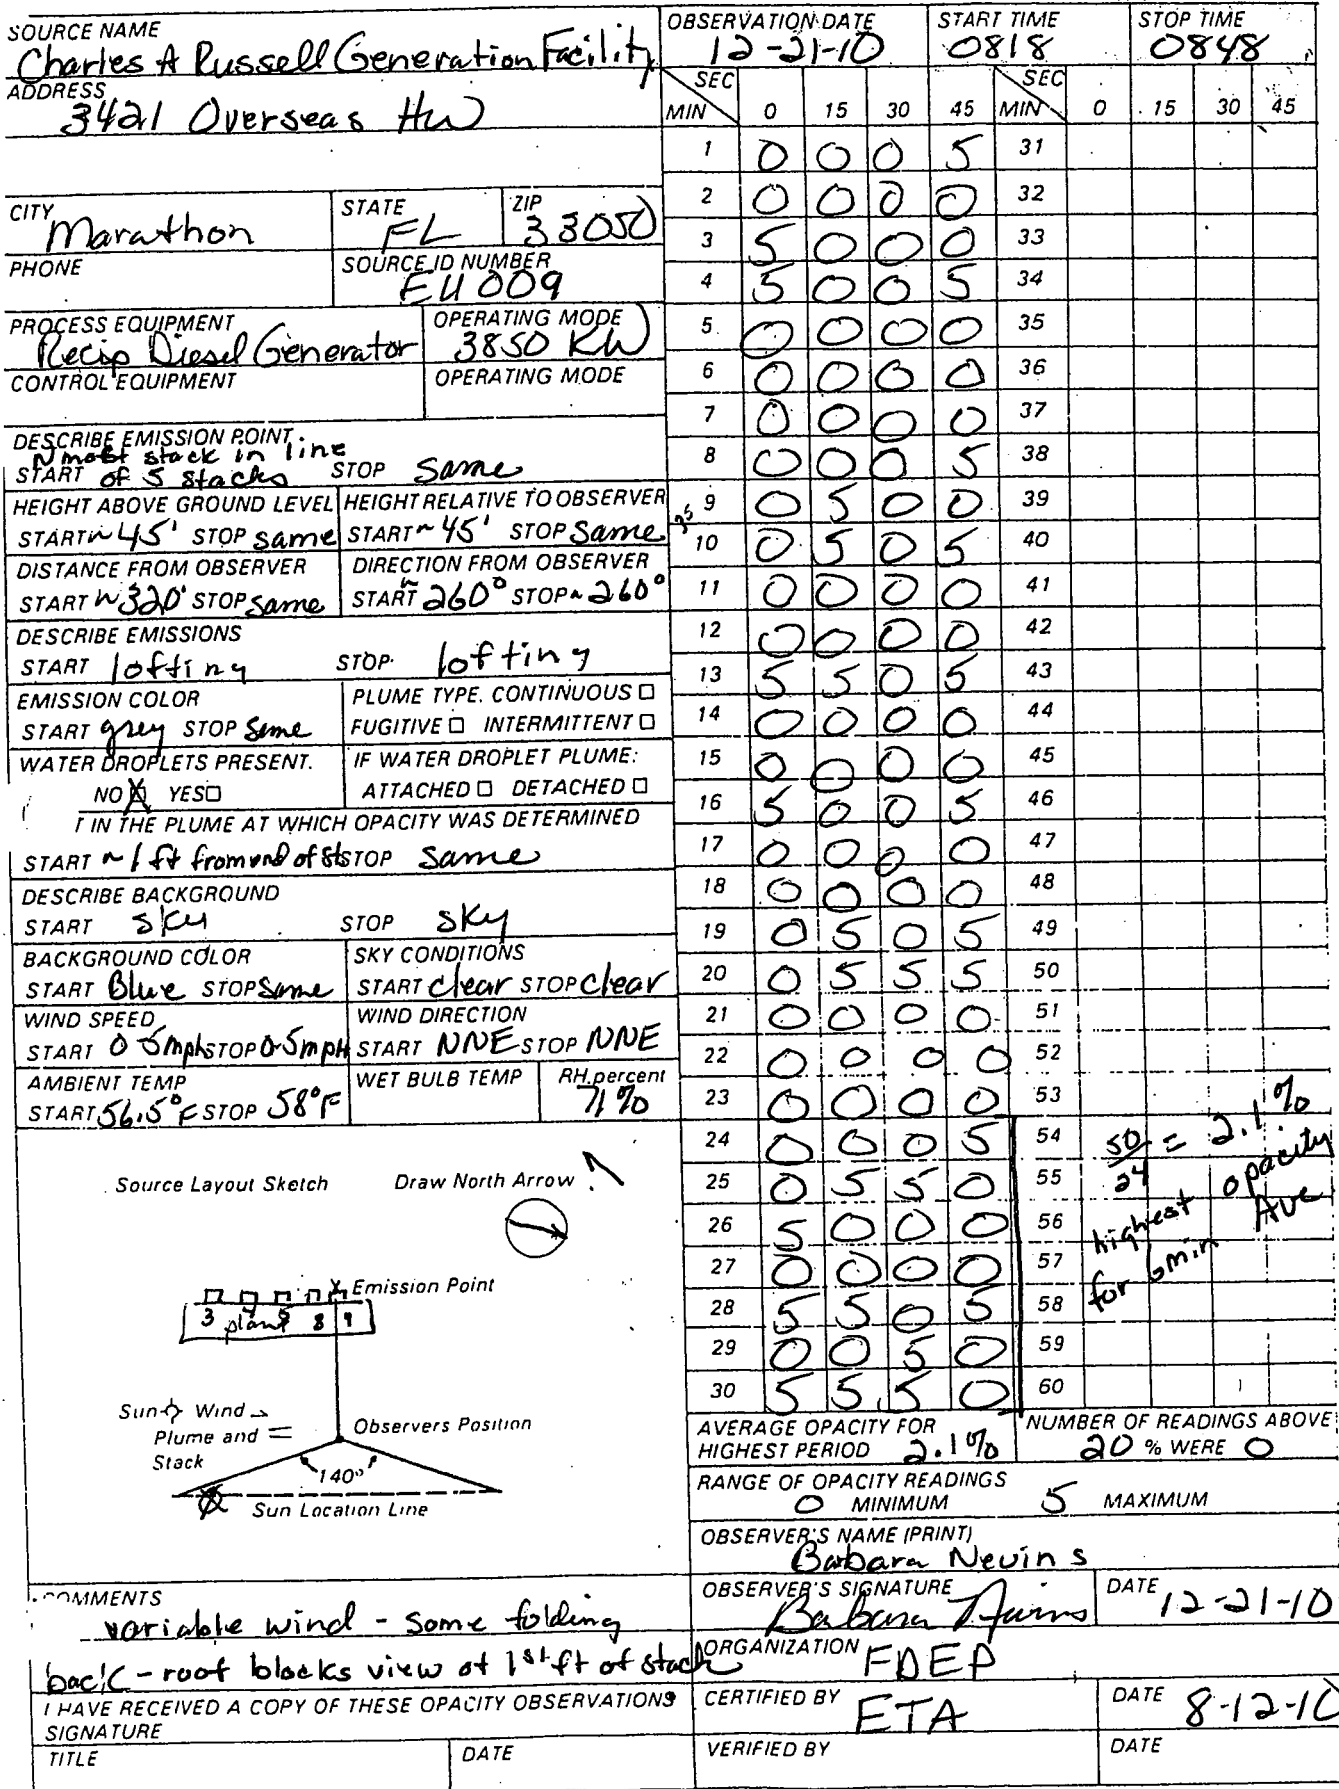 SOURCE NAME
Charles A Russell Generation Facility
ADDRESS
3421 Overseas Hw
CITY
Marathon
STATE
FL
ZIP
33050
PHONE
SOURCE ID NUMBER
EU 009
PROCESS EQUIPMENT
Recip Diesel Generator
OPERATING MODE
3850 KW
CONTROL EQUIPMENT
OPERATING MODE
DESCRIBE EMISSION POINT
START Nmost stack in line of 5 stacks STOP same
HEIGHT ABOVE GROUND LEVEL
START ~ 45' STOP same
HEIGHT RELATIVE TO OBSERVER
START ~ 45' STOP same
35
DISTANCE FROM OBSERVER
START ~ 320' STOP same
DIRECTION FROM OBSERVER
START ~ 260° STOP ~ 260°
DESCRIBE EMISSIONS
START lofting STOP lofting
EMISSION COLOR
START grey STOP Same
PLUME TYPE. CONTINUOUS □
FUGITIVE □ INTERMITTENT □
WATER DROPLETS PRESENT.
NO X YES □
IF WATER DROPLET PLUME:
ATTACHED □ DETACHED □
T IN THE PLUME AT WHICH OPACITY WAS DETERMINED
START ~ 1 ft from end of STOP same
DESCRIBE BACKGROUND
START sky STOP sky
BACKGROUND COLOR
START Blue STOP Same
SKY CONDITIONS
START clear STOP clear
WIND SPEED
START 0-5mph STOP 0-5mph
WIND DIRECTION
START NNE STOP NNE
AMBIENT TEMP
START 56.5°F STOP 58°F
WET BULB TEMP
RH.percent
71%
Source Layout Sketch Draw North Arrow
X Emission Point
3 4 5 8 9
plant
Sun Wind
Plume and
Stack
Observers Position
140°
Sun Location Line
COMMENTS
variable wind - some folding
back - roof blocks view of 1st ft of stack
I HAVE RECEIVED A COPY OF THESE OPACITY OBSERVATIONS
SIGNATURE
TITLE DATE
OBSERVATION DATE
12-21-10
START TIME
0818
STOP TIME
0848
SEC MIN 0 15 30 45 SEC MIN 0 15 30 45
1 0 0 0 5 31
2 0 0 0 0 32
3 5 0 0 0 33
4 5 0 0 5 34
5 0 0 0 0 35
6 0 0 0 0 36
7 0 0 0 0 37
8 0 0 0 5 38
9 0 5 0 0 39
10 0 5 0 5 40
11 0 0 0 0 41
12 0 0 0 0 42
13 5 5 0 5 43
14 0 0 0 0 44
15 0 0 0 0 45
16 5 0 0 5 46
17 0 0 0 0 47
18 0 0 0 0 48
19 0 5 0 5 49
20 0 5 5 5 50
21 0 0 0 0 51
22 0 0 0 0 52
23 0 0 0 0 53
24 0 0 0 5 54
25 0 5 5 0 55
26 5 0 0 0 56
27 0 0 0 0 57
28 5 5 0 5 58
29 0 0 5 0 59
30 5 5 5 0 60
50/24 = 2.1%
highest opacity
for 6min Ave
AVERAGE OPACITY FOR
HIGHEST PERIOD 2.1%
NUMBER OF READINGS ABOVE
20 % WERE 0
RANGE OF OPACITY READINGS
0 MINIMUM 5 MAXIMUM
OBSERVER'S NAME (PRINT)
Barbara Nevins
OBSERVER'S SIGNATURE
Barbara Nevins
DATE 12-21-10
ORGANIZATION
FDEP
CERTIFIED BY
ETA
DATE 8-12-10
VERIFIED BY
DATE